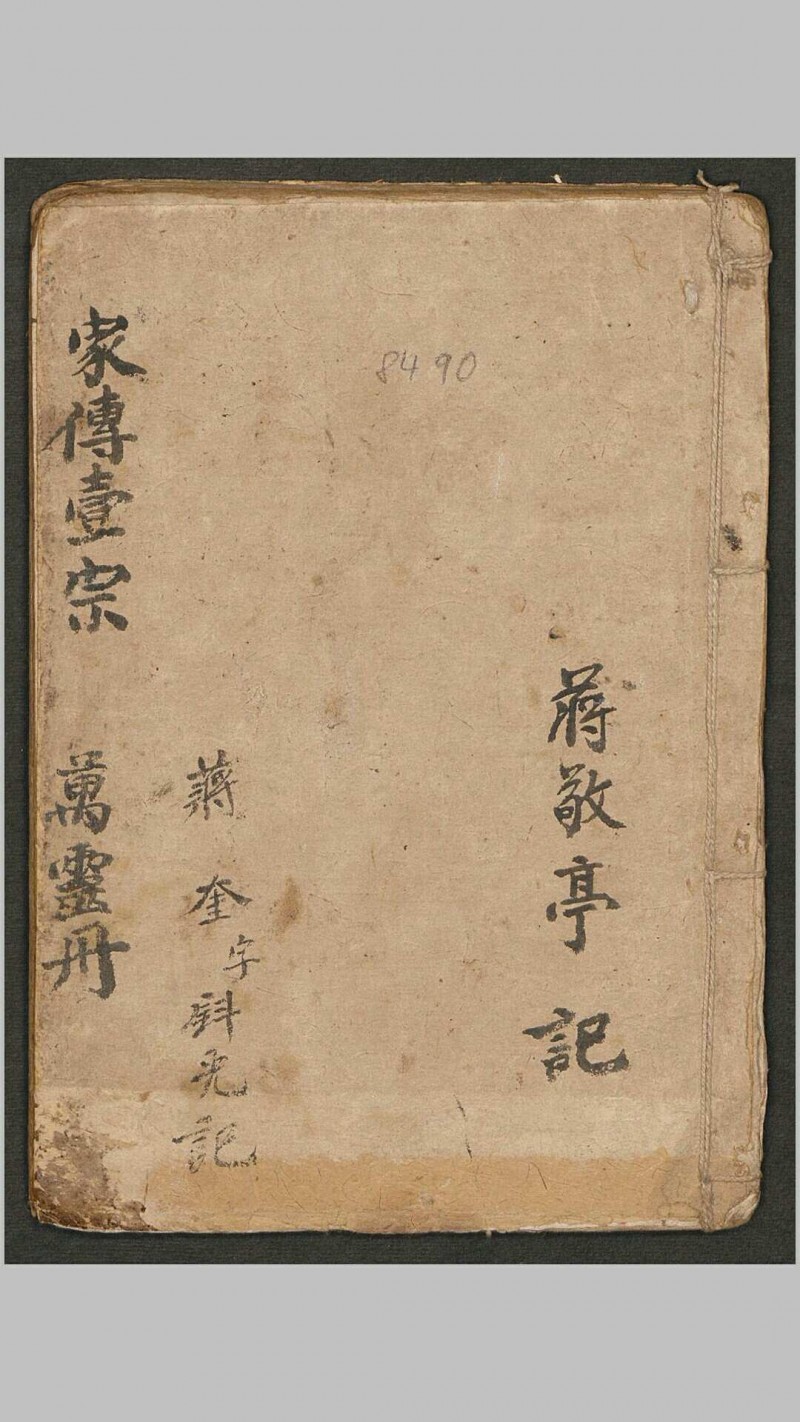 蔣敬亭 記
8490
蔣 奎字 光記
家傳壹宗 萬靈冊